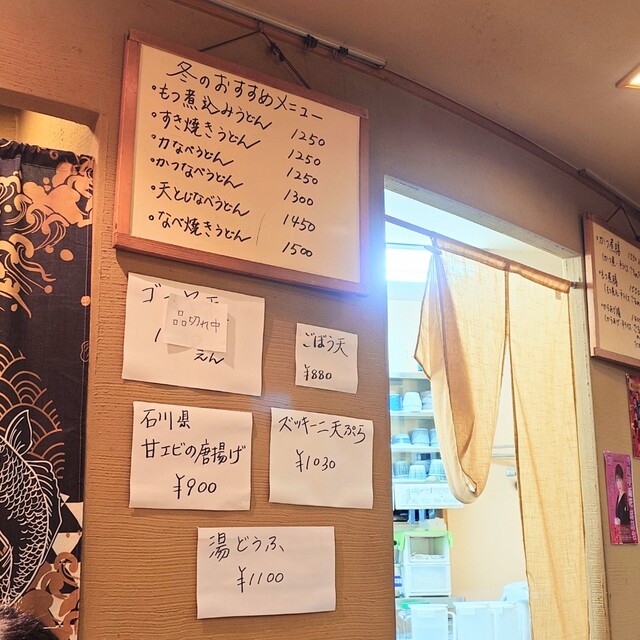 冬のおすすめメニュー
・もつ煮込みうどん 1250
・すき焼きうどん 1250
・力なべうどん 1250
・かつなべうどん 1300
・天とじなべうどん 1450
・なべ焼きうどん 1500
品切れ中
えん
ごぼう天
¥880
石川県
甘エビの唐揚げ
¥900
ズッキーニ天ぷら
¥1030
湯どうふ
¥1100